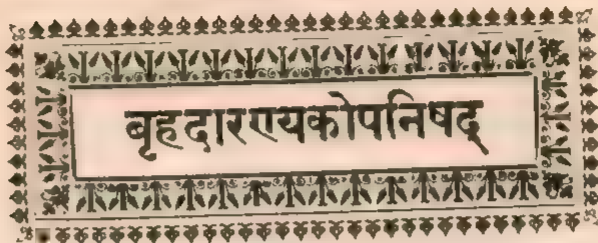 बृहदारण्यकोपनिषद्